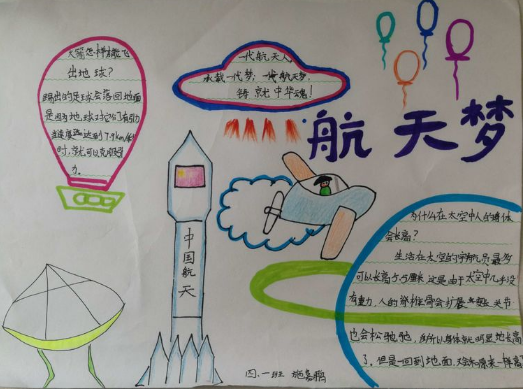 航天梦
一代航天人
承载一代梦,一代航天梦,
铸就中华魂!
火箭怎样才能飞
出地球?
踢出的足球会落回地面
是因为地球对它们有引力
当速度达到7.9km/s
时,就可以克服引
力。
中国航天
为什么在太空中人的身体
会长高?
生活在太空的宇航员最多
可以长高5.5厘米,这是由于太空中几乎没
有重力,人的脊椎骨会扩展,关节
也会松弛,所以身体就明显地长高
了。但是一回到地面,又会和原来一样高
四.一班